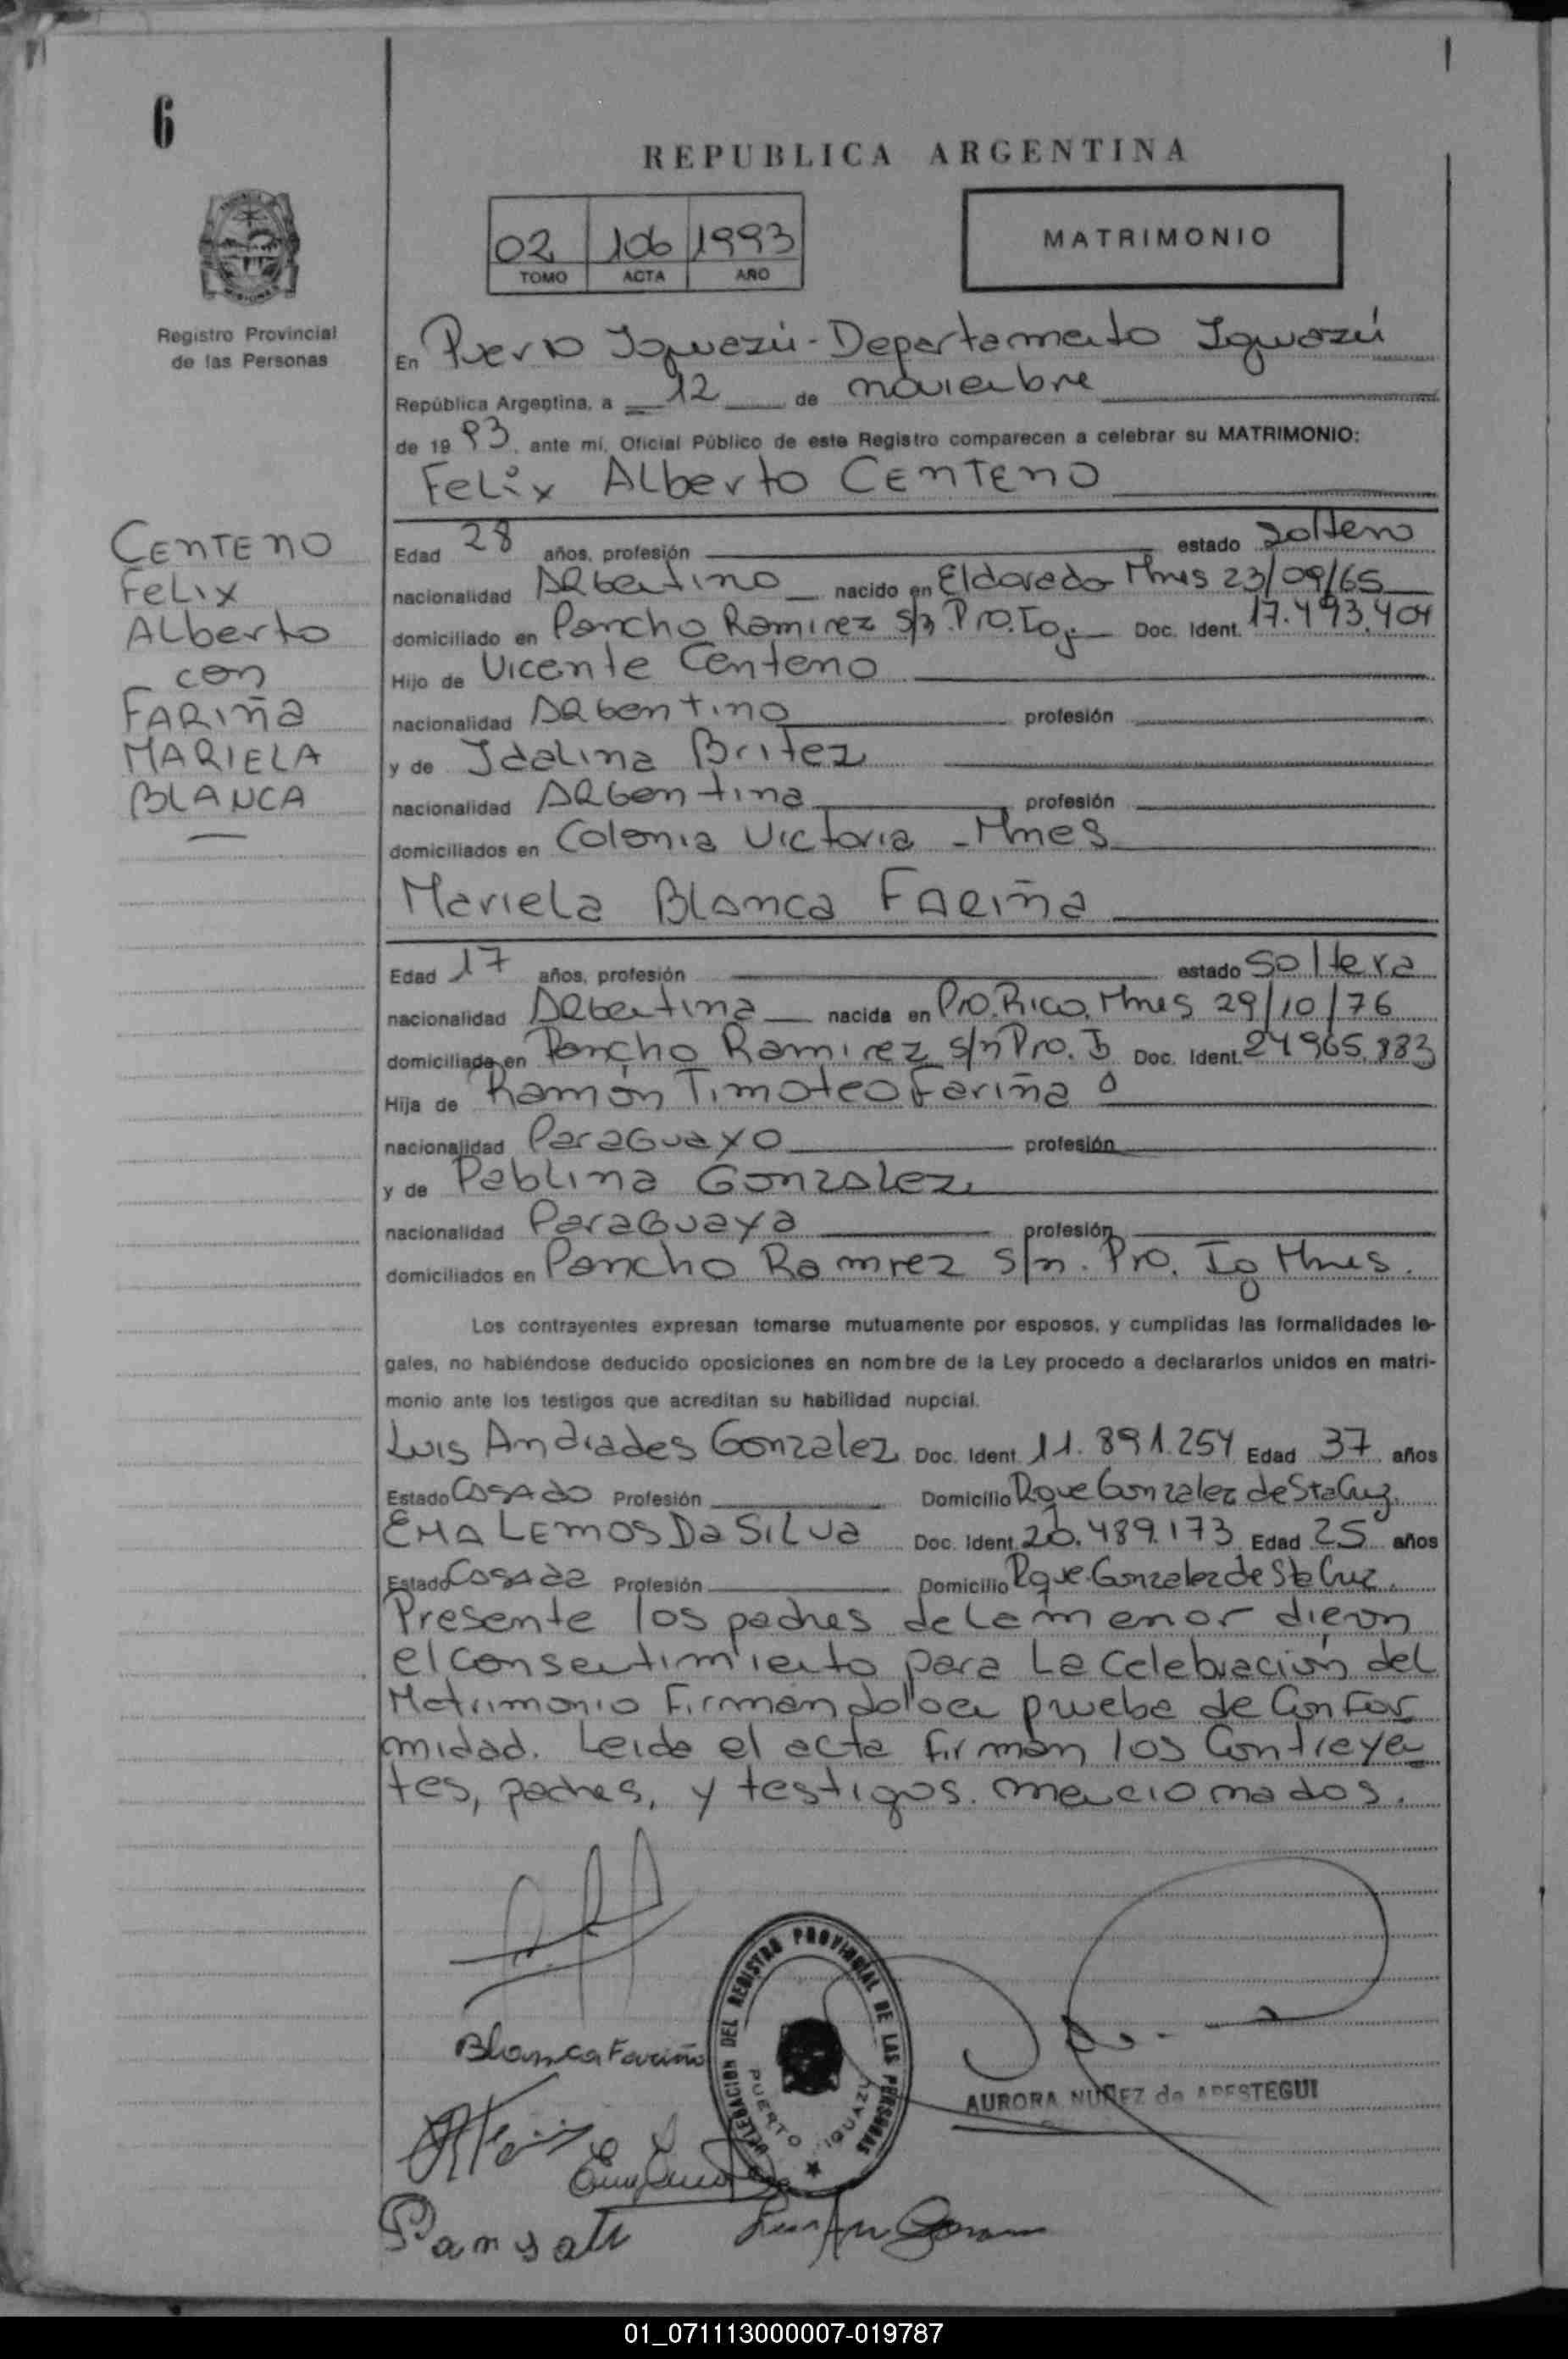 6
REPUBLICA ARGENTINA
02 106 1993
TOMO ACTA AÑO
MATRIMONIO
Registro Provincial
de las Personas
En Puerto Iguazú - Departamento Iguazú
República Argentina, a 12 de noviembre
de 19 93, ante mí, Oficial Público de este Registro comparecen a celebrar su MATRIMONIO:
Felix Alberto CENTENO
CENTENO
Felix
Alberto
con
FARIÑA
MARIELA
BLANCA
Edad 28 años, profesión estado Soltero
nacionalidad Argentino nacido en Eldorado Mnes 23/09/65
domiciliado en Pancho Ramirez s/n Pto. Ig. Doc. Ident. 17.493.404
Hijo de Vicente Centeno
nacionalidad Argentino profesión
y de Idalina Britez
nacionalidad Argentina profesión
domiciliados en Colonia Victoria - Mnes
Mariela Blanca FARIÑA
Edad 17 años, profesión estado Soltera
nacionalidad Argentina nacida en Pto. Rico, Mnes 29/10/76
domiciliada en Pancho Ramirez s/n Pto. I Doc. Ident. 24965.883
Hija de Ramón Timoteo Fariña
nacionalidad Paraguayo profesión
y de Pablina Gonzalez
nacionalidad Paraguaya profesión
domiciliados en Pancho Ramrez s/n. Pto. Ig Mnes.
Los contrayentes expresan tomarse mutuamente por esposos, y cumplidas las formalidades le-
gales, no habiéndose deducido oposiciones en nombre de la Ley procedo a declararlos unidos en matri-
monio ante los testigos que acreditan su habilidad nupcial.
Luis Andrades Gonzalez Doc. Ident. 11.891.254 Edad 37 años
Estado Casado Profesión Domicilio Rque Gonzalez de Sta Cruz.
EMA LEMOS Da SILVa Doc. Ident. 20.489.173 Edad 25 años
Estado Casada Profesión Domicilio Rque Gonzalez de Sta Cruz.
Presente los padres de la menor dieron
el consentimiento para la celebración del
Matrimonio firmandolo en prueba de Confor
midad. Leida el acta firman los Contrayen
tes, padres, y testigos mencionados.
Blanca Fariña
DELEGACION DEL REGISTRO PROVINCIAL DE LAS PERSONAS
PUERTO IGUAZU
AURORA NUÑEZ de APESTEGUI
01_071113000007-019787